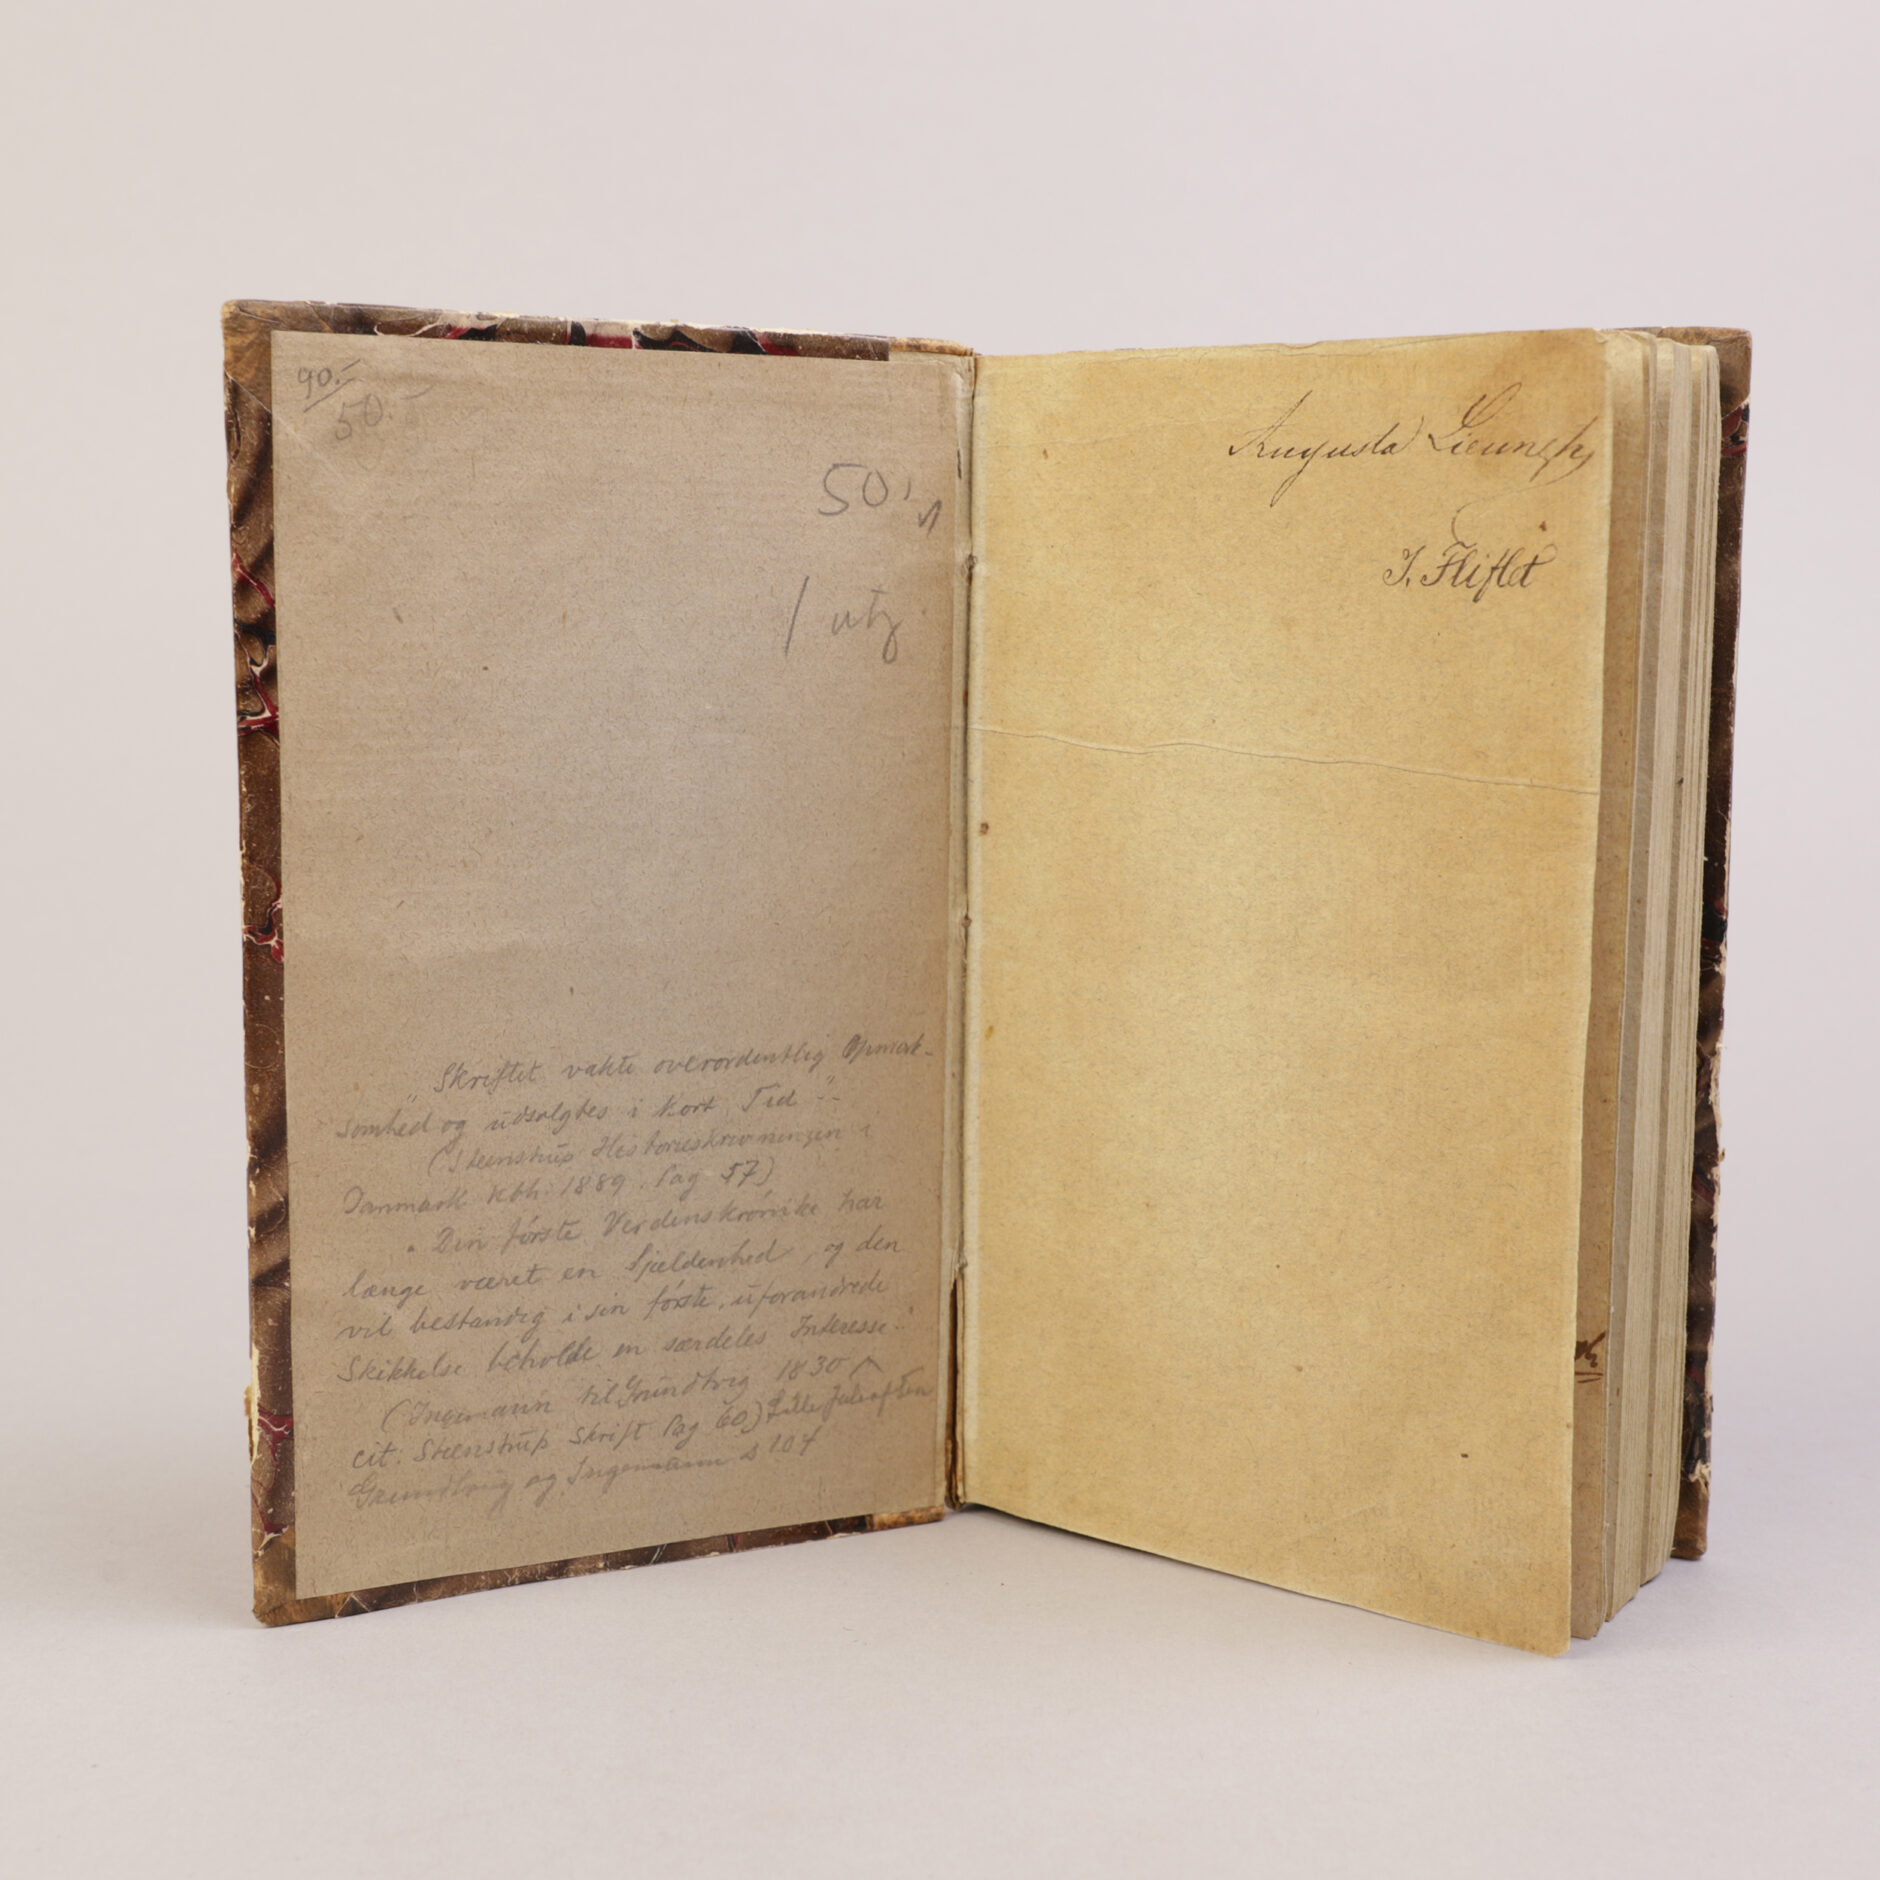 90.-
50.-
50,
"Skriftet vakte overordentlig Opmærk-
somhed og udsolgtes i kort Tid"
(Steenstrup Historieskrivningen i
Danmark Kbh. 1889. Pag 57)
"Din første Verdenskrønike har
længe været en Sjeldenhed, og den
vil bestandig i sin første, uforandrede
Skikkelse beholde en særdeles Interesse"
(Ingemann til Grundtvig 1830
cit: Steenstrup skrift Pag 60) Lille Juleaften
Grundtvig og Ingemann s 104
Augusta
J. Fliflet